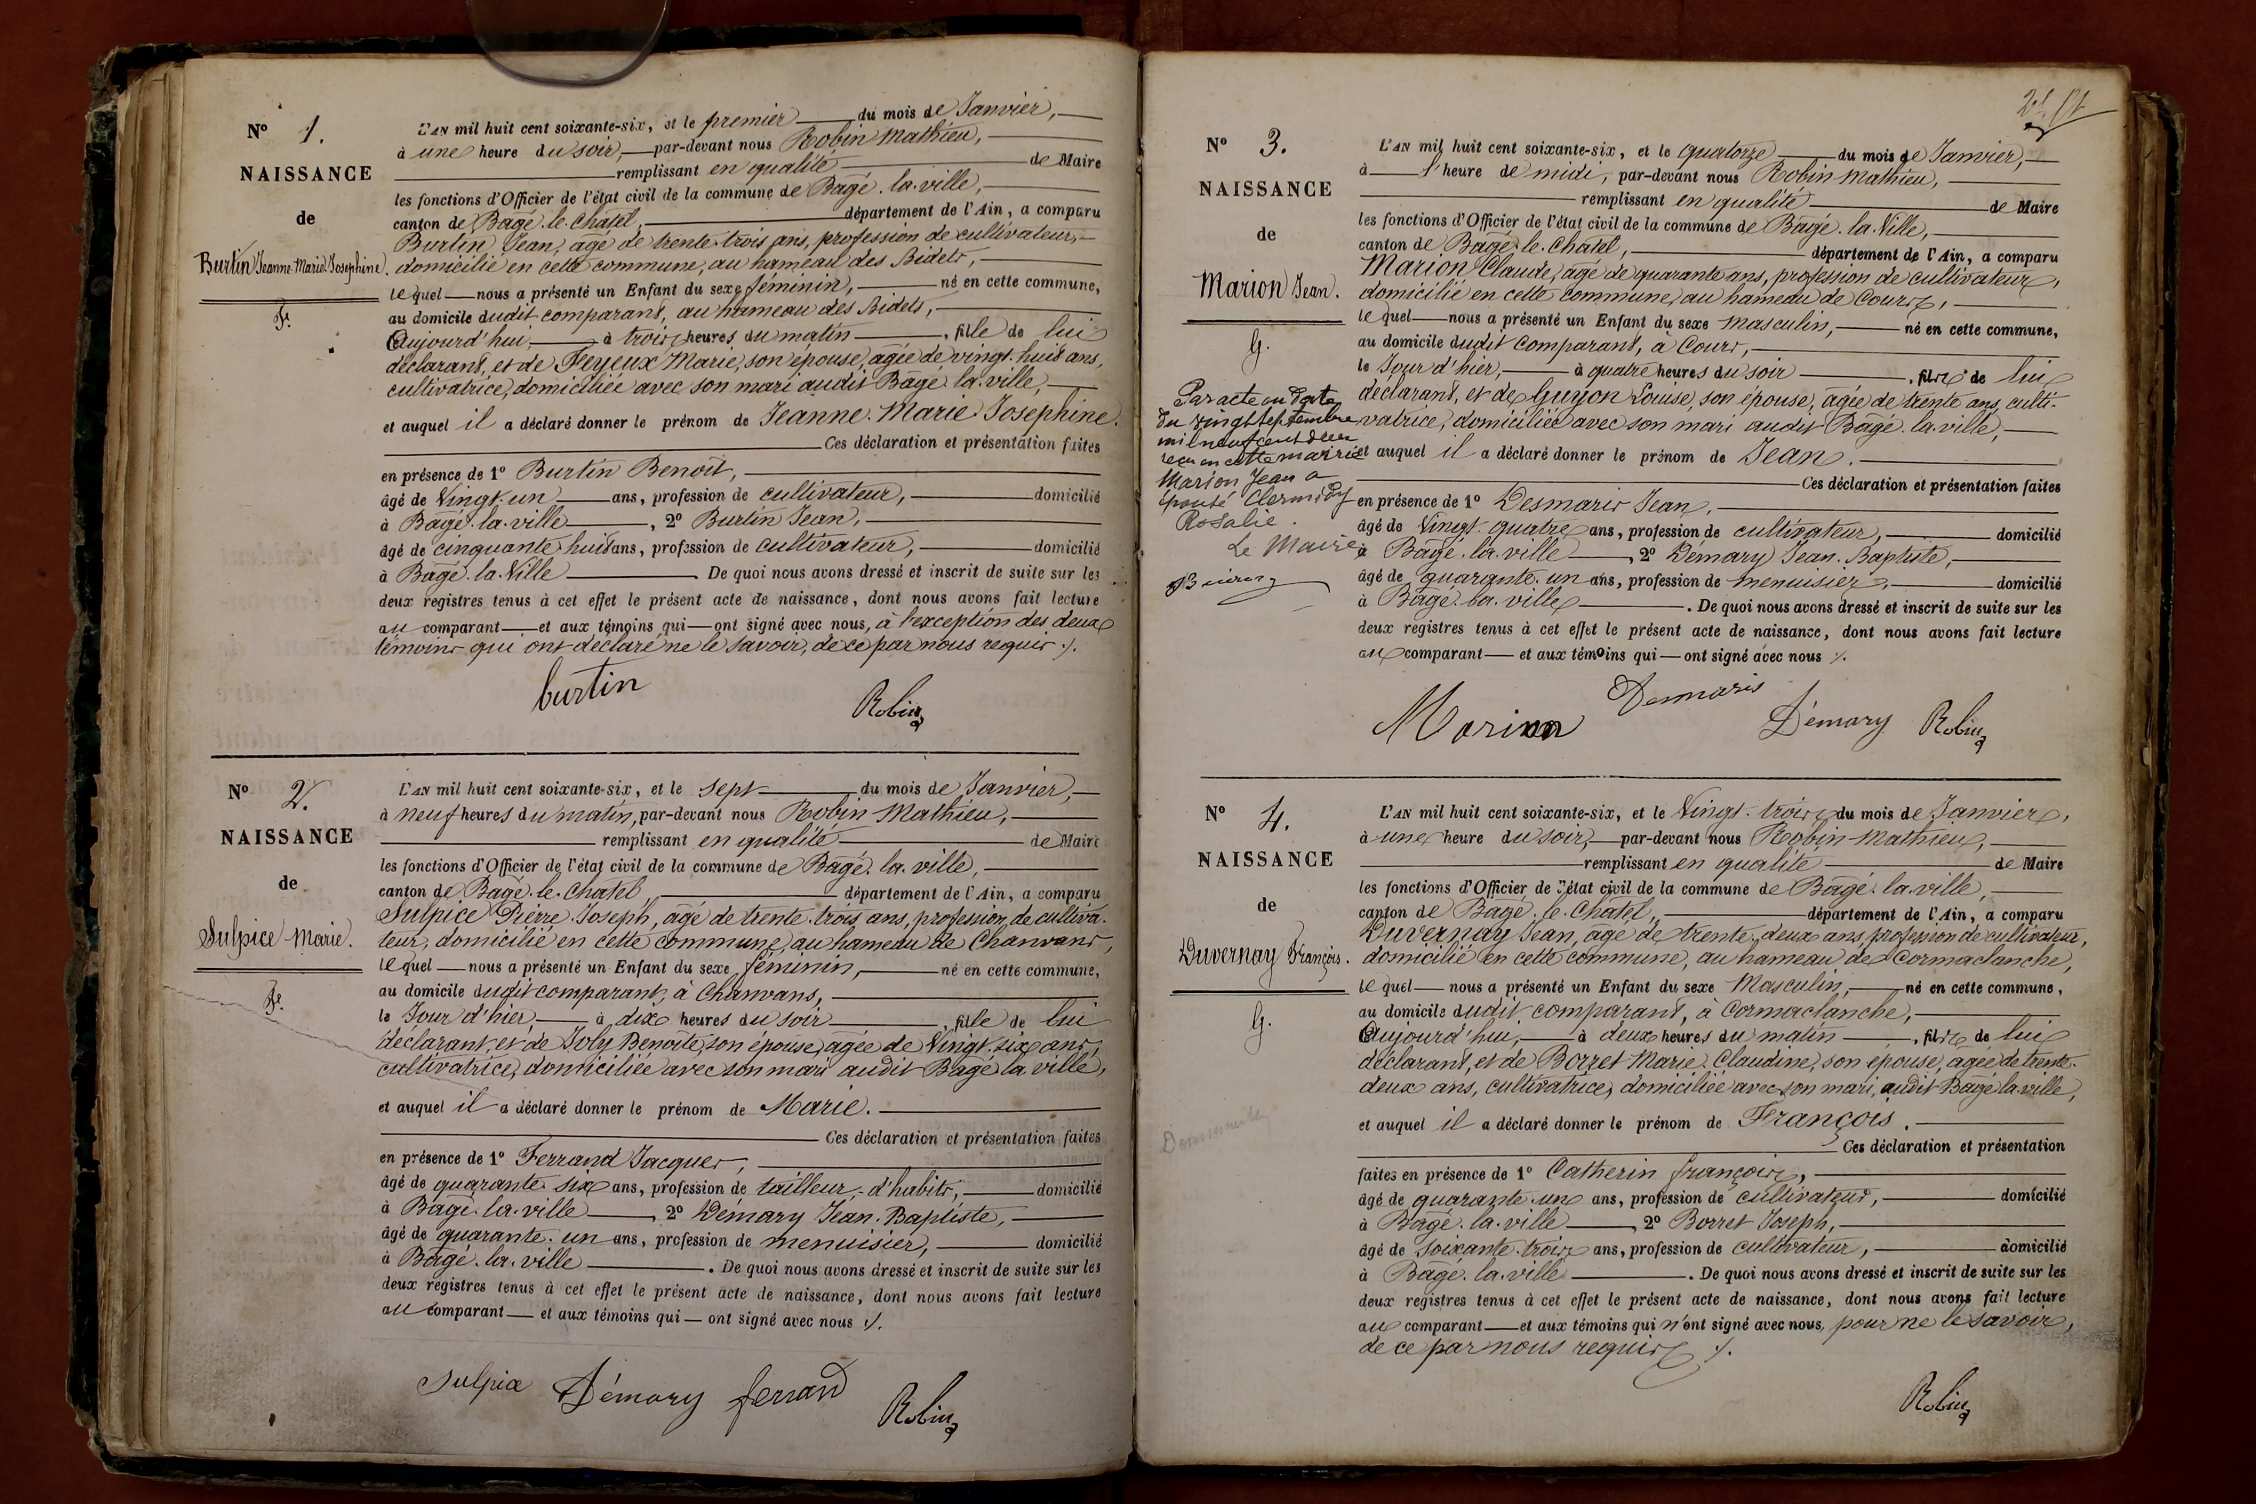 N° 1.
NAISSANCE
de
Burtin Jeanne Marie Josephine.
F.
L'AN mil huit cent soixante-six, et le premier du mois de Janvier,
à une heure du soir, par-devant nous Robin Mathieu,
remplissant en qualité de Maire
les fonctions d'Officier de l'état civil de la commune de Bagé-la-ville,
canton de Bagé-le-Châtel, département de l'Ain, a comparu
Burtin Jean, âgé de trente-trois ans, profession de cultivateur,
domicilié en cette commune, au hameau des Bidets,
lequel nous a présenté un Enfant du sexe féminin, né en cette commune,
au domicile dudit comparant, au hameau des Bidets,
Aujourd'hui, à trois heures du matin, fille de lui
déclarant, et de Feyeux Marie, son épouse, âgée de vingt-huit ans,
cultivatrice, domiciliée avec son mari audit Bâgé-la-ville,
et auquel il a déclaré donner le prénom de Jeanne-Marie-Josephine.
Ces déclaration et présentation faites
en présence de 1° Burtin Benoit,
âgé de Vingt-un ans, profession de cultivateur, domicilié
à Bâgé-la-ville, 2° Burtin Jean,
âgé de cinquante-huit ans, profession de cultivateur, domicilié
à Bâgé-la-Ville. De quoi nous avons dressé et inscrit de suite sur les
deux registres tenus à cet effet le présent acte de naissance, dont nous avons fait lecture
au comparant et aux témoins qui ont signé avec nous, à l'exception des deux
témoins qui ont déclaré ne le savoir, de ce par nous requis ./.
burtin Robin
N° 2.
NAISSANCE
de
Sulpice Marie.
F.
L'AN mil huit cent soixante-six, et le sept du mois de Janvier,
à neuf heures du matin, par-devant nous Robin Mathieu,
remplissant en qualité de Maire
les fonctions d'Officier de l'état civil de la commune de Bagé-la-ville,
canton de Bagé-le-Chatel, département de l'Ain, a comparu
Sulpice Pierre-Joseph, âgé de trente-trois ans, profession de cultiva-
teur, domicilié en cette commune, au hameau de Chanvans,
lequel nous a présenté un Enfant du sexe féminin, né en cette commune,
au domicile dudit comparant, à Chanvans,
le Jour d'hier, à dix heures du soir, fille de lui
déclarant, et de Joly Benoîte, son épouse, âgée de Vingt-six ans,
cultivatrice, domiciliée avec son mari audit Bâgé la ville,
et auquel il a déclaré donner le prénom de Marie.
Ces déclaration et présentation faites
en présence de 1° Ferrand Jacques,
âgé de quarante-six ans, profession de tailleur-d'habits, domicilié
à Bagé-la-ville, 2° Démary Jean-Baptiste,
âgé de quarante-un ans, profession de menuisier, domicilié
à Bâgé-la-ville. De quoi nous avons dressé et inscrit de suite sur les
deux registres tenus à cet effet le présent acte de naissance, dont nous avons fait lecture
au comparant et aux témoins qui ont signé avec nous ./.
Sulpice Démary ferrand Robin
N° 3.
NAISSANCE
de
Marion Jean.
G.
Par acte en date
du vingt septembre
mil neuf cent deux
reçu en cette mairie
Marion Jean a
épousé Clermidy
Rosalie.
Le Maire
L'AN mil huit cent soixante-six, et le quatorze du mois de Janvier,
à l'heure de midi, par-devant nous Robin Mathieu,
remplissant en qualité de Maire
les fonctions d'Officier de l'état civil de la commune de Bâgé-la-Ville,
canton de Bagé-le-Châtel, département de l'Ain, a comparu
Marion Claude, âgé de quarante ans, profession de cultivateur,
domicilié en cette commune, au hameau de Cours,
lequel nous a présenté un Enfant du sexe masculin, né en cette commune,
au domicile dudit comparant, à Cours,
le Jour d'hier, à quatre heures du soir, fils de lui
déclarant, et de Guyon Louise, son épouse, âgée de trente ans, culti-
vatrice, domiciliée avec son mari audit Bâgé-la-ville,
et auquel il a déclaré donner le prénom de Jean.
Ces déclaration et présentation faites
en présence de 1° Desmaris Jean,
âgé de Vingt-quatre ans, profession de cultivateur, domicilié
à Bagé-la-ville, 2° Démary Jean-Baptiste,
âgé de quarante-un ans, profession de menuisier, domicilié
à Bagé-la-ville. De quoi nous avons dressé et inscrit de suite sur les
deux registres tenus à cet effet le présent acte de naissance, dont nous avons fait lecture
au comparant et aux témoins qui ont signé avec nous ./.
Marion Desmaris Démary Robin
N° 4.
NAISSANCE
de
Duvernay François.
G.
L'AN mil huit cent soixante-six, et le Vingt-trois du mois de Janvier,
à une heure du soir, par-devant nous Robin Mathieu,
remplissant en qualité de Maire
les fonctions d'Officier de l'état civil de la commune de Bâgé-la-ville,
canton de Bagé-le-Châtel, département de l'Ain, a comparu
Duvernay Jean, âgé de trente-deux ans, profession de cultivateur,
domicilié en cette commune, au hameau de Cormaclanche,
lequel nous a présenté un Enfant du sexe Masculin, né en cette commune,
au domicile dudit comparant, à Cormaclanche,
Aujourd'hui, à deux heures du matin, fils de lui
déclarant, et de Borret Marie-Claudine, son épouse, âgée de trente-
deux ans, cultivatrice, domiciliée avec son mari, audit Bagé la-ville,
et auquel il a déclaré donner le prénom de François.
Ces déclaration et présentation
faites en présence de 1° Catherin françois,
âgé de quarante-un ans, profession de cultivateur, domicilié
à Bâgé-la-ville, 2° Borret Joseph,
âgé de soixante-trois ans, profession de cultivateur, domicilié
à Bâgé-la-ville. De quoi nous avons dressé et inscrit de suite sur les
deux registres tenus à cet effet le présent acte de naissance, dont nous avons fait lecture
au comparant et aux témoins qui n'ont signé avec nous, pour ne le savoir,
de ce par nous requis ./.
Robin